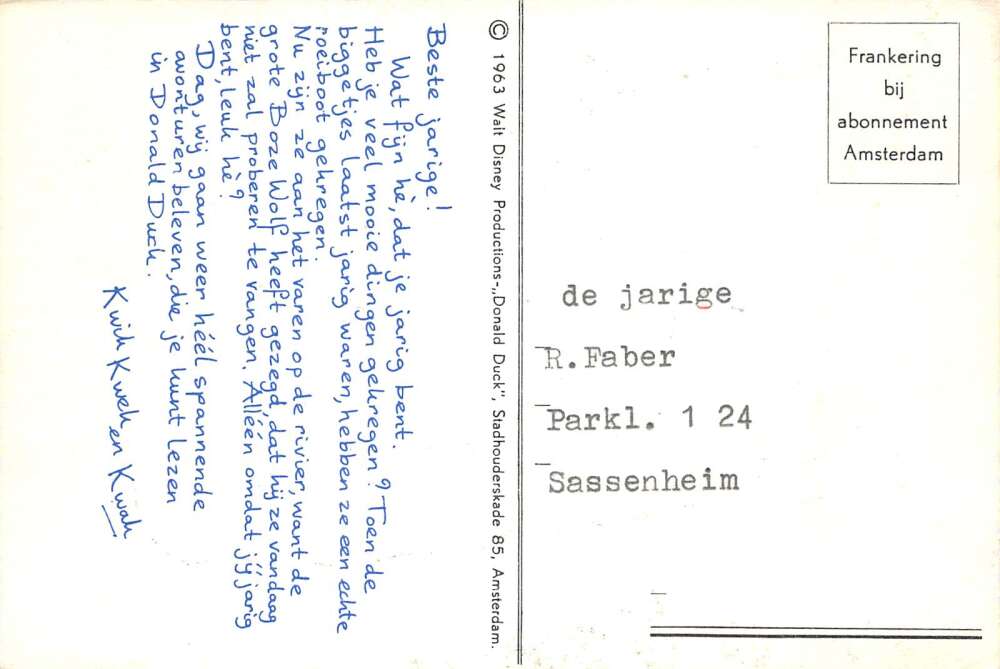 Beste jarige!
Wat fijn hè, dat je jarig bent.
Heb je veel mooie dingen gekregen? Toen de
biggetjes laatst jarig waren, hebben ze een echte
roeiboot gekregen.
Nu zijn ze aan het varen op de rivier, want de
grote Boze Wolf heeft gezegd, dat hij ze vandaag
niet zal proberen te vangen. Alléén omdat jij jarig
bent, leuk hè?
Dag, wij gaan weer héél spannende
avonturen beleven, die je kunt lezen
in Donald Duck.
Kwik Kwek en Kwak
© 1963 Walt Disney Productions-„Donald Duck", Stadhouderskade 85, Amsterdam.
Frankering
bij
abonnement
Amsterdam
de jarige
R.Faber
Parkl. 1 24
Sassenheim